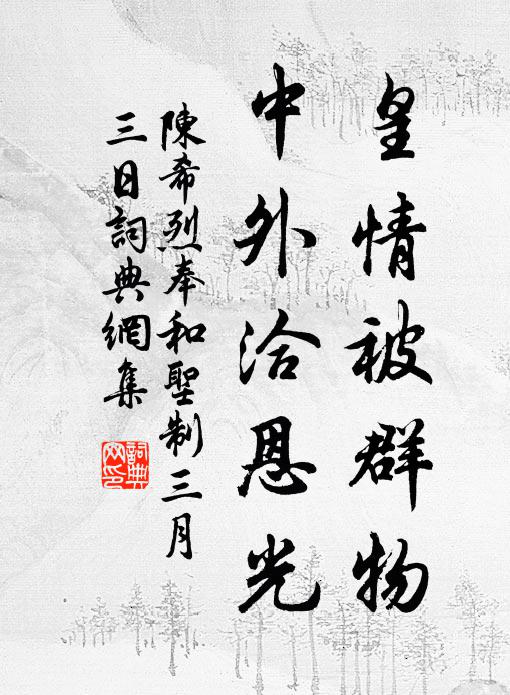 皇情被群物
中外洽恩光
陳希烈奉和聖制三月
三日詞典網集
詞典
网印